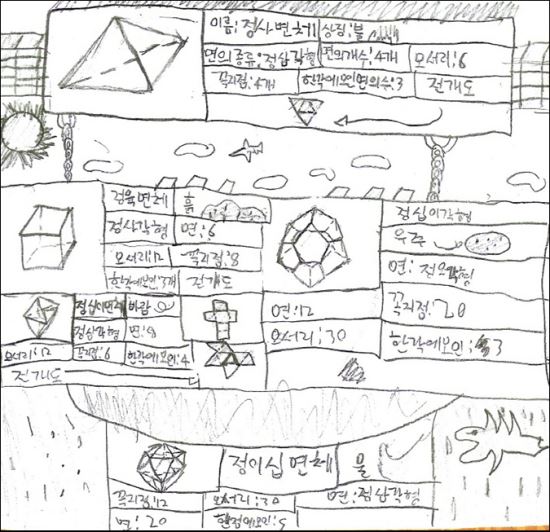 이름:정사면체 상징:불
면의 종류:정삼각형 면의개수:4개 모서리:6
꼭지점:4개 한각에모인면의수:3 전개도
정육면체 흙
정사각형 면:6
모서리:12 꼭지점:8
한각에모인:3개 전개도
정십이면체 바람
정삼각형 면:8
모서리:12 꼭지점:6 한각에모인:4
전개도
정십이각형
우주
면:12 면:정오각형
모서리:30 꼭지점:20
한각에모인:3
정이십면체 물
꼭지점:12 모서리:30 면:정삼각형
면:20 한점에모인:5